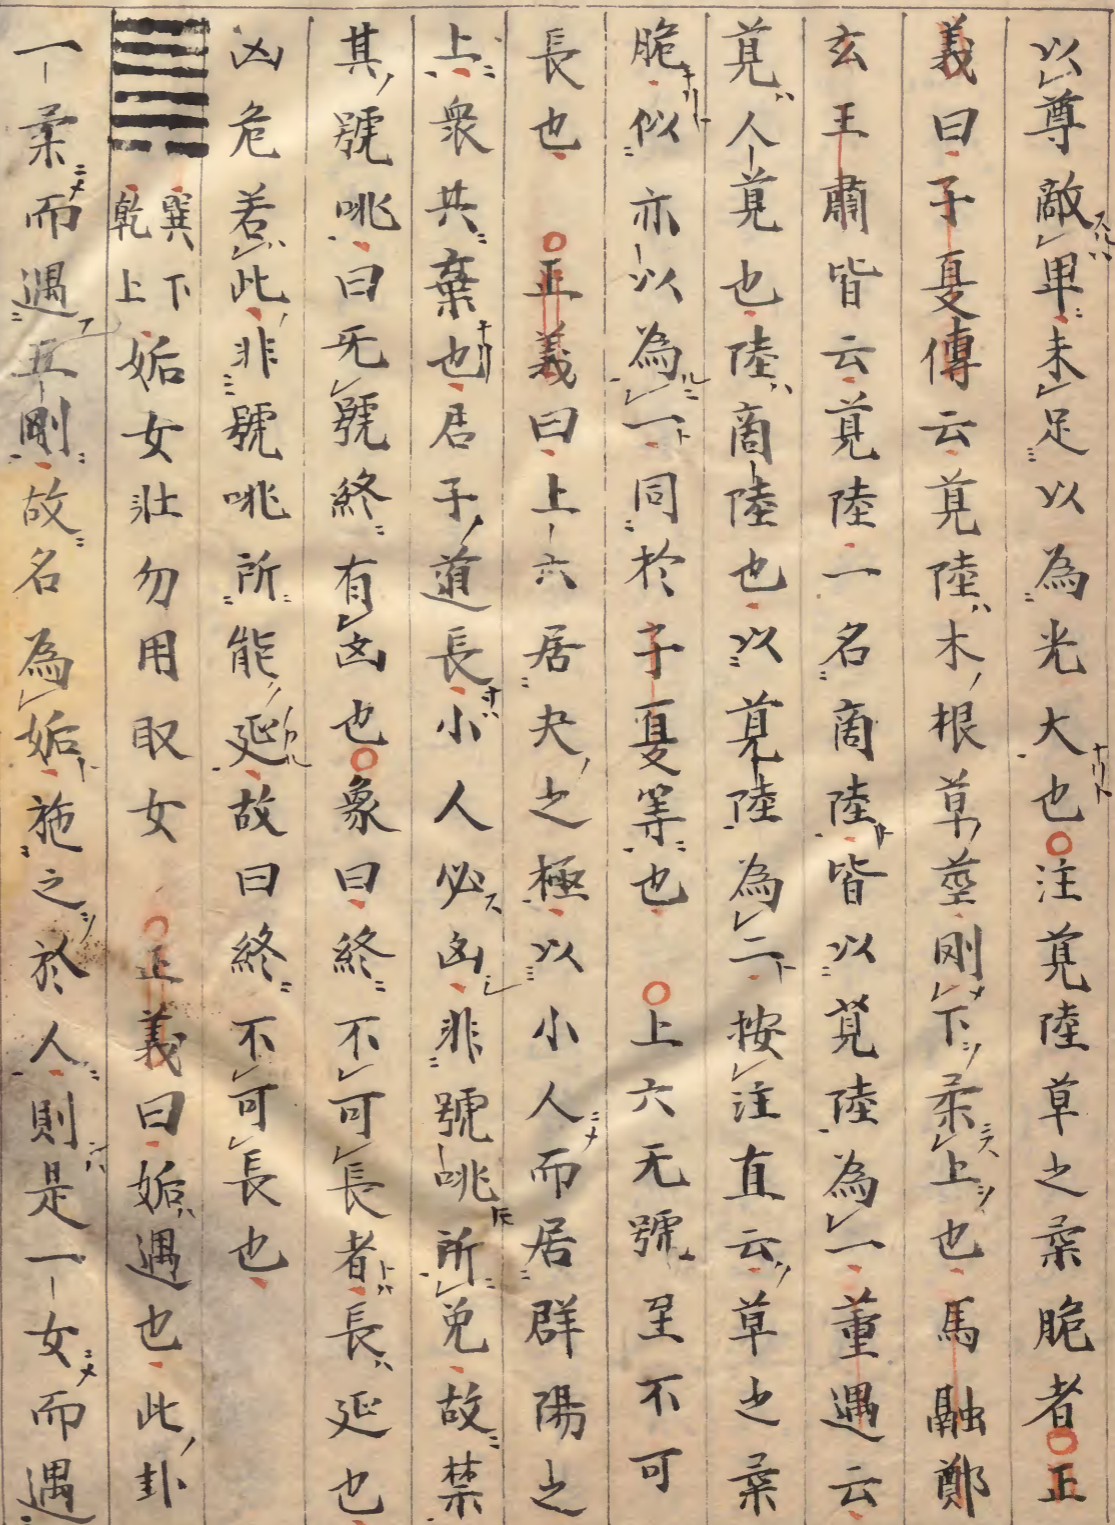 以尊敵卑未足以為光大也○注莧陸草之柔脆者○正
義曰子夏傳云莧陸木根草莖剛下柔上也馬融鄭
玄王肅皆云莧陸一名商陸皆以莧陸為一董遇云
莧人莧也陸商陸也以莧陸為二按注直云草之柔
脆似亦以為一同於子夏等也○上六无號至不可
長也○正義曰上六居夬之極以小人而居群陽之
上衆共棄也君子道長小人必凶非號咷所免故禁
其號咷曰无號終有凶也○象曰終不可長者長延也
凶危若此非號咷所能延故曰終不可長也
䷫巽下乾上姤女壯勿用取女○正義曰姤遇也此卦
一柔而遇五剛故名為姤施之於人則是一女而遇